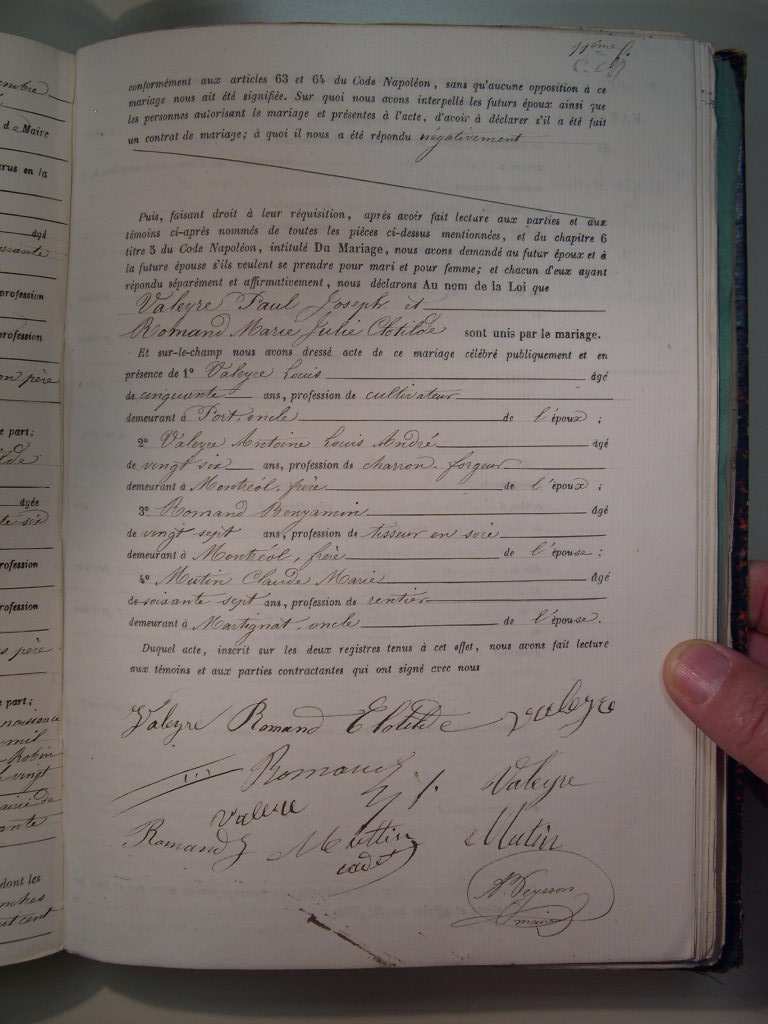 11ème f.
conformément aux articles 63 et 64 du Code Napoléon, sans qu'aucune opposition à ce
mariage nous ait été signifiée. Sur quoi nous avons interpellé les futurs époux ainsi que
les personnes autorisant le mariage et présentes à l'acte, d'avoir à déclarer s'il a été fait
un contrat de mariage; à quoi il nous a été répondu négativement
Puis, faisant droit à leur réquisition, après avoir fait lecture aux parties et aux
témoins ci-après nommés de toutes les pièces ci-dessus mentionnées, et du chapitre 6
titre 5 du Code Napoléon, intitulé Du Mariage, nous avons demandé au futur époux et à
la future épouse s'ils veulent se prendre pour mari et pour femme; et chacun d'eux ayant
répondu séparément et affirmativement, nous déclarons Au nom de la Loi que
Valeyre Paul Joseph et
Romand Marie Julie Clotilde sont unis par le mariage.
Et sur-le-champ nous avons dressé acte de ce mariage célébré publiquement et en
présence de 1° Valeyre Louis âgé
de cinquante ans, profession de cultivateur
demeurant à Port, oncle de l'époux ;
2° Valeyre Antoine Louis André âgé
de vingt six ans, profession de charron-forgeur
demeurant à Montréol, frère de l'époux ;
3° Romand Benjamin âgé
de vingt sept ans, profession de tisseur en soie
demeurant à Montréol, frère de l'épouse ;
4° Mutin Claude Marie âgé
de soisante sept ans, profession de rentier
demeurant à Martignat, oncle de l'épouse.
Duquel acte, inscrit sur les deux registres tenus à cet effet, nous avons fait lecture
aux témoins et aux parties contractantes qui ont signé avec nous
Valeyre Romand Clotilde Valeyre
Romand Valeyre
Valeyre
Romand Muttin Mutin
cadet
maire